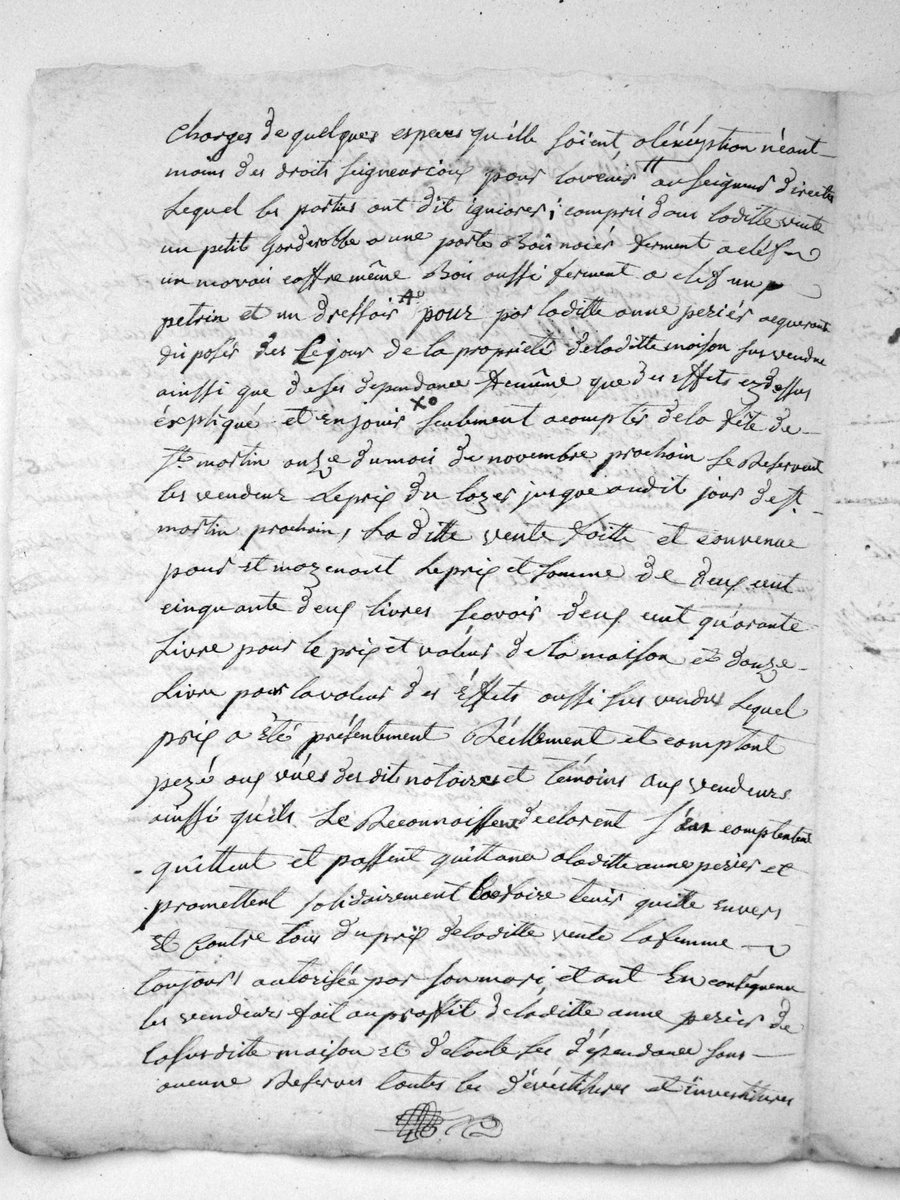 charges de quelques especes qu'elle soient, a l'éxéption néant-
moins des droits seigneuriaux pour lavenir au seigneur directe
Lequel les parties ont dit igniorer; compris dans laditte vente
un petit garderobbe a une porte Bois noier ferment a clef
un movai coffre même Bois aussi ferment a clef un
petrin et un dressair pour par laditte anne perier aquerant
disposer des le jour de la propriété de laditte maison sus vendue
ainssi que de ses dependance & même que des effets cy dessus
éxpliqué et en jouir seulement a compter de la fête de
St martin onze du mois de novembre prochain se Reservent
les vendeur Le prix du loyer jusque audit jour de st
martin prochain, La ditte vente faitte et convenue
pour et moyenant Le prix et somme de deux cent
cinquante deux livres scavoir deux cent quarante
Livre pour le prix et valeur de la maison et douze
Livre pour la valeur des Effets aussi sus vendus Lequel
prix a été présentement Réellement et comptant
payé aux vües desdit notaires et témoins aux vendeurs
ainssi qu'ils Le Reconnaissent declarent s'en comptenter
quittent et passent quittance a laditte anne perier et
promettent solidairement la faire tenir quitte envers
Et Contre tous du prix de laditte vente la femme
toujours autorisée par son mari, et ont En conséquence
les vendeurs fait au proffit de laditte anne perier de
la susditte maison et de toute ses dépendance sans
aucune Reserves toutes les dévestitures et investitures